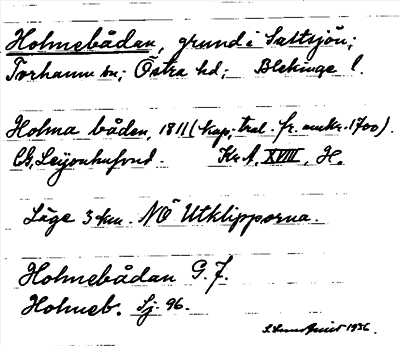 Holmebådan, grund i Saltsjön;
Torhamn sn; Östra hd; Blekinge l.
Holma båden, 1811 (kap; tral. fr. omkr. 1700).
CG, Leijonhufvud. Kr. A. XVIII, H.
Läge 3 km. NÖ Utklipporna.
Holmebådan G. J.
Holmeb. Sj. 96.
1936